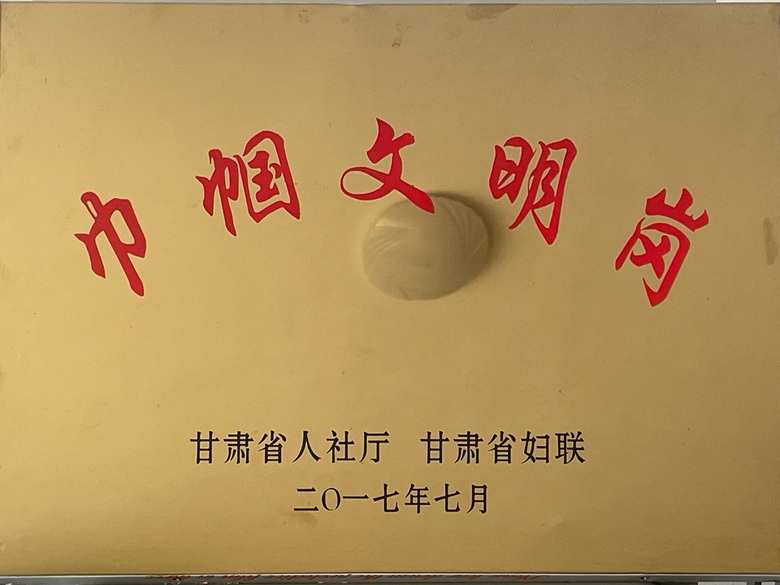 巾帼文明岗
甘肃省人社厅 甘肃省妇联
二〇一七年七月